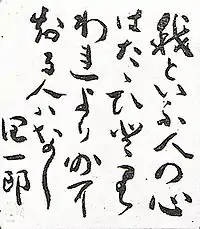 我といふ人の心
はたゞひとり
われより外に
知る人はなし
潤一郎